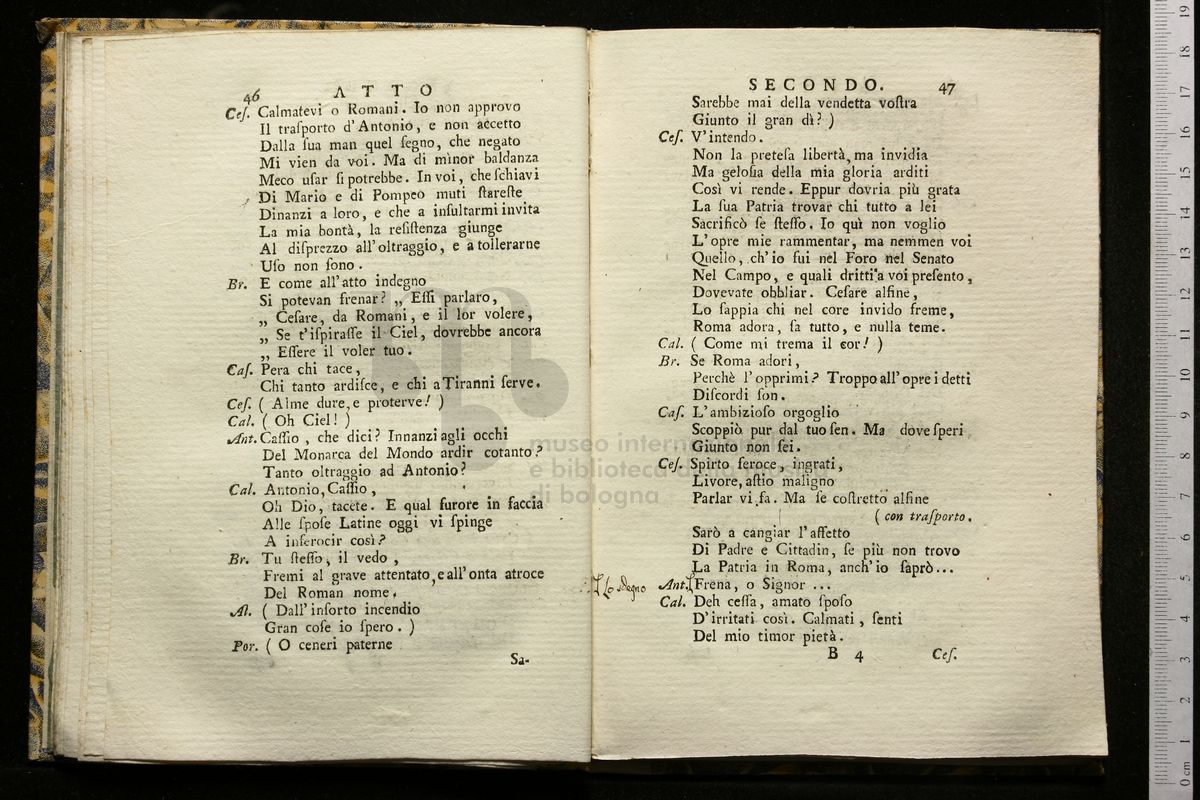 46 ATTO
Ceſ. Calmatevi o Romani. Io non approvo
Il traſporto d'Antonio, e non accetto
Dalla ſua man quel ſegno, che negato
Mi vien da voi. Ma di minor baldanza
Meco uſar ſi potrebbe. In voi, che ſchiavi
Di Mario e di Pompeo muti ſtareſte
Dinanzi a loro, e che a inſultarmi invita
La mia bontà, la reſiſtenza giunge
Al diſprezzo all'oltraggio, e a tollerarne
Uſo non ſono.
Br. E come all'atto indegno
Si potevan frenar? „ Eſſi parlaro,
„ Ceſare, da Romani, e il lor volere,
„ Se t'iſpiraſſe il Ciel, dovrebbe ancora
„ Eſſere il voler tuo.
Caſ. Pera chi tace,
Chi tanto ardiſce, e chi a Tiranni ſerve.
Ceſ. ( Alme dure, e proterve! )
Cal. ( Oh Ciel! )
Ant. Caſſio, che dici? Innanzi agli occhi
Del Monarca del Mondo ardir cotanto?
Tanto oltraggio ad Antonio?
Cal. Antonio, Caſſio,
Oh Dio, tacete. E qual furore in faccia
Alle ſpoſe Latine oggi vi ſpinge
A inferocir così?
Br. Tu ſteſſo, il vedo,
Fremi al grave attentato, e all'onta atroce
Del Roman nome.
Al. ( Dall'inſorto incendio
Gran coſe io ſpero. )
Por. ( O ceneri paterne
Sa-
SECONDO. 47
Sarebbe mai della vendetta voſtra
Giunto il gran dì? )
Ceſ. V'intendo.
Non la preteſa libertà, ma invidia
Ma geloſia della mia gloria arditi
Così vi rende. Eppur dovria più grata
La ſua Patria trovar chi tutto a lei
Sacrificò ſe ſteſſo. Io quì non voglio
L'opre mie rammentar, ma nemmen voi
Quello, ch'io fui nel Foro nel Senato
Nel Campo, e quali dritti a voi preſento,
Dovevate obbliar. Ceſare alfine,
Lo ſappia chi nel core invido freme,
Roma adora, ſa tutto, e nulla teme.
Cal. ( Come mi trema il cor! )
Br. Se Roma adori,
Perchè l'opprimi? Troppo all'opre i detti
Diſcordi ſon.
Caſ. L'ambizioſo orgoglio
Scoppiò pur dal tuo ſen. Ma dove ſperi
Giunto non ſei.
Ceſ. Spirto feroce, ingrati,
Livore, aſtio maligno
Parlar vi fa. Ma ſe coſtretto alfine
( con traſporto.
Sarò a cangiar l'affetto
Di Padre e Cittadin, ſe più non trovo
La Patria in Roma, anch'io ſaprò...
Lo sdegno
Ant. Frena, o Signor ...
Cal. Deh ceſſa, amato ſpoſo
D'irritati così. Calmati, ſenti
Del mio timor pietà.
B 4 Ceſ.
museo internazionale
e biblioteca della musica
di bologna
0 cm 1 2 3 4 5 6 7 8 9 10 11 12 13 14 15 16 17 18 19